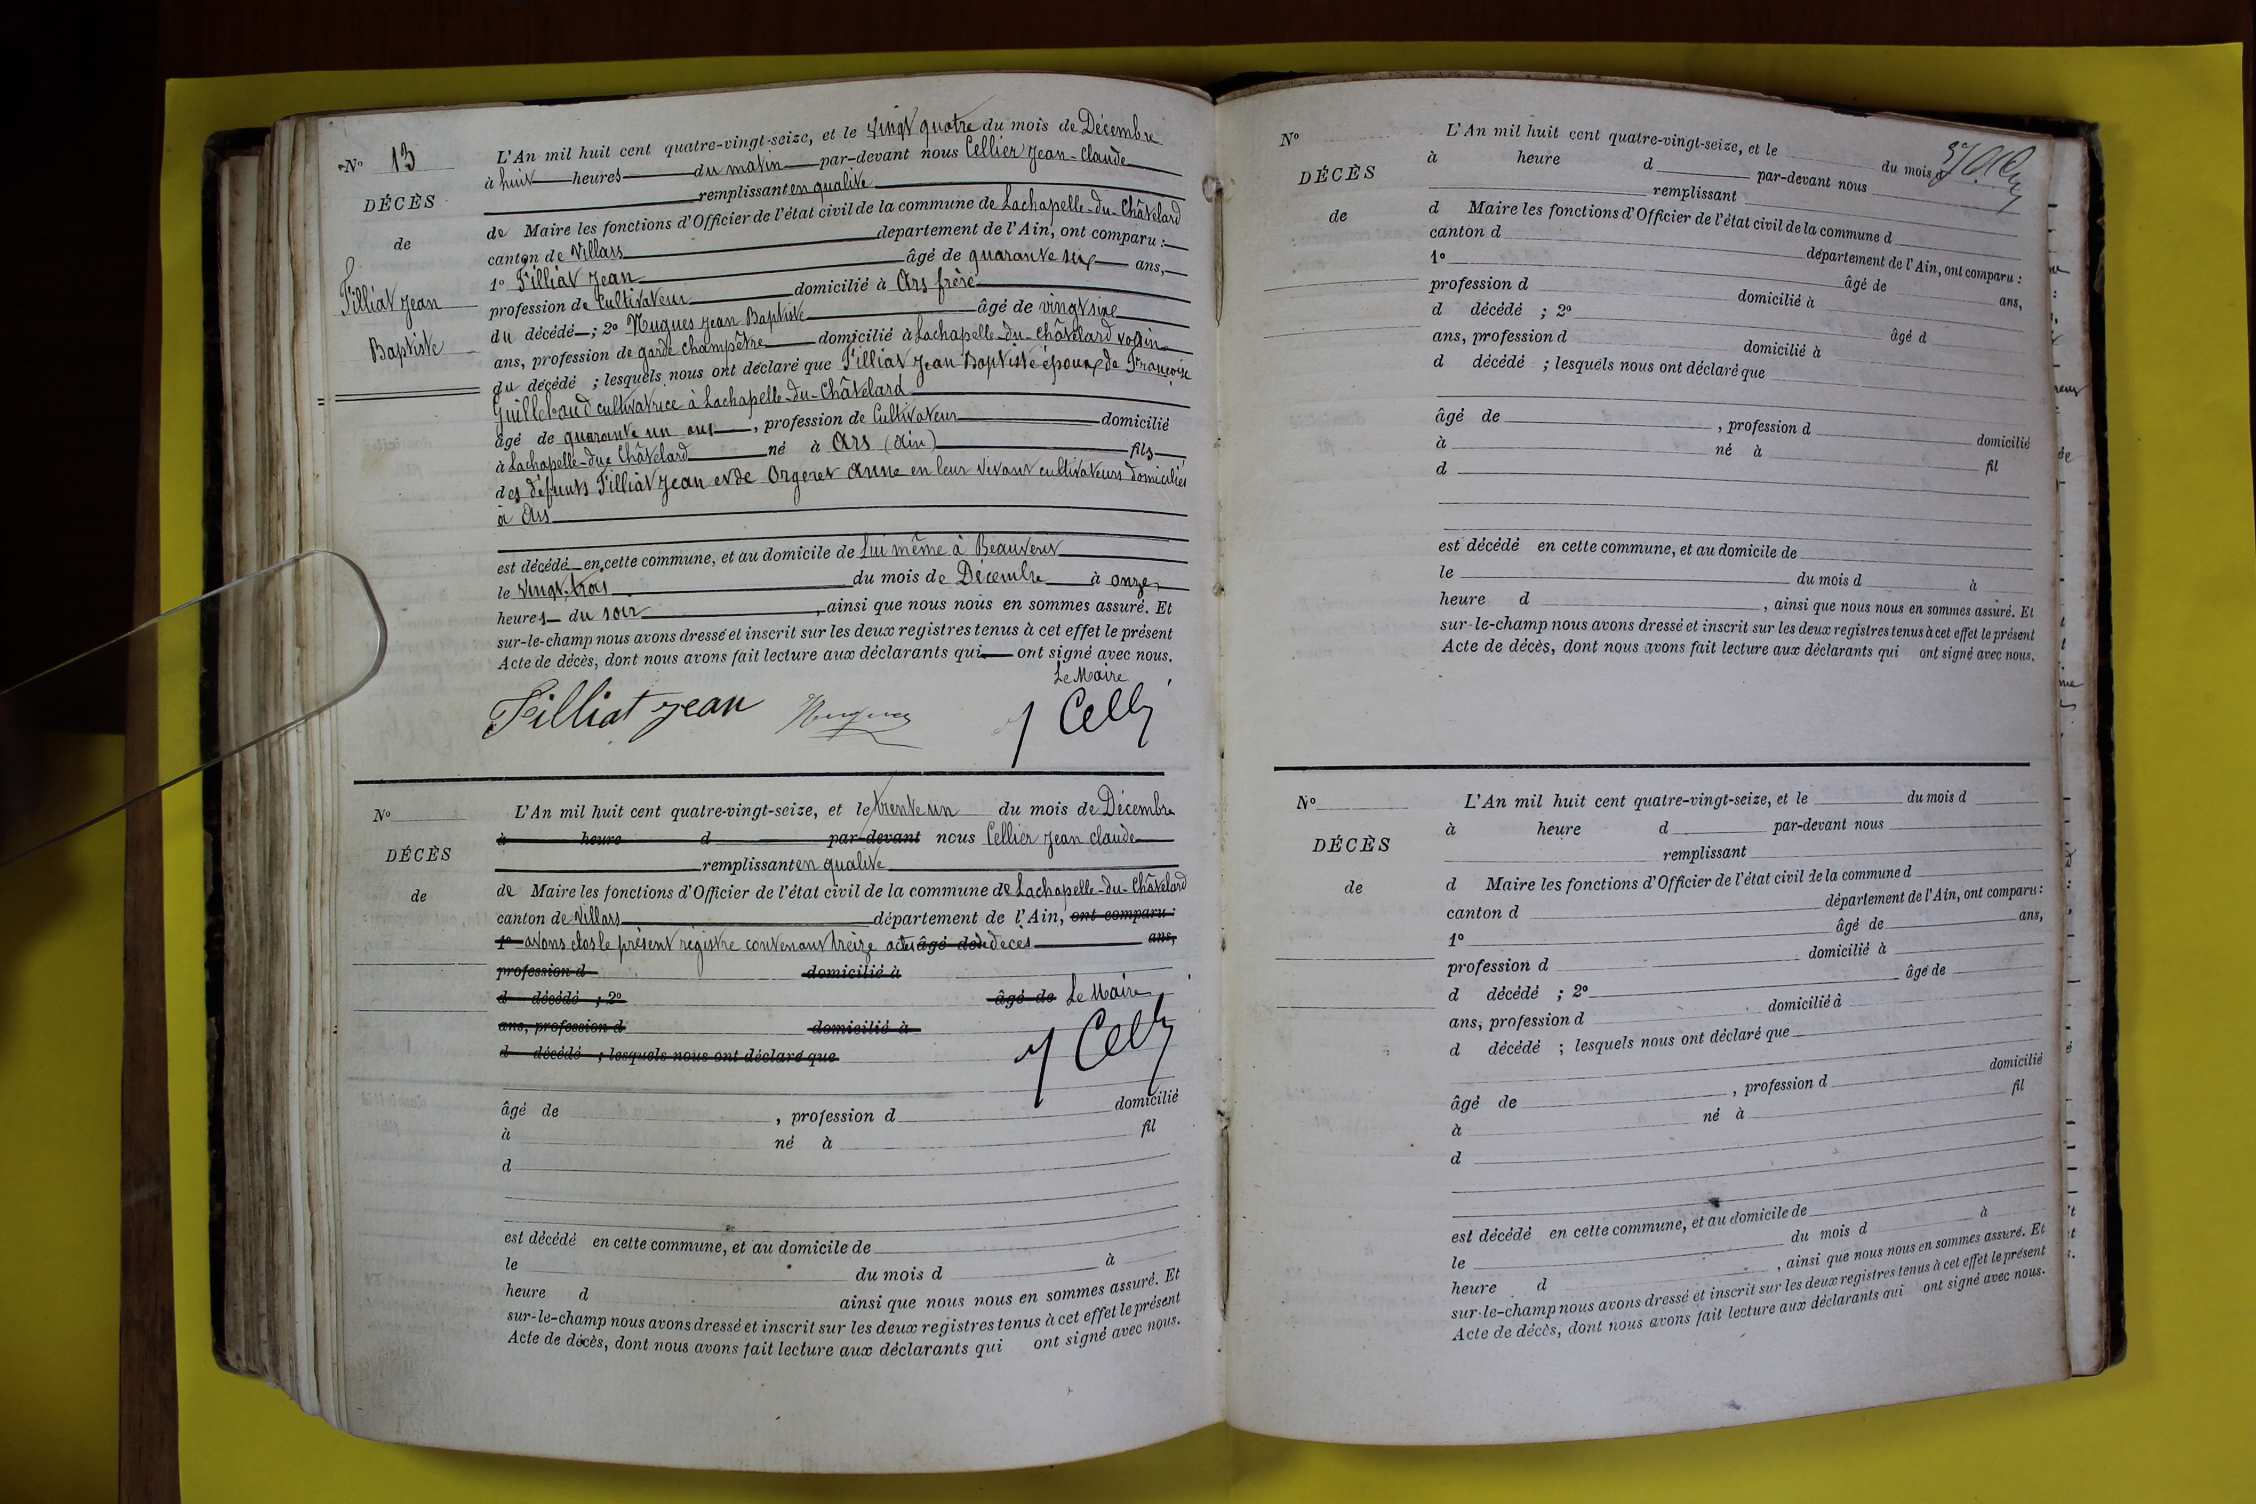 N° 13
DÉCÈS
de
Filliat Jean
Baptiste
L'An mil huit cent quatre-vingt-seize, et le vingt quatre du mois de Décembre
à huit heures du matin par-devant nous Cellier Jean-Claude
remplissant en qualité
de Maire les fonctions d'Officier de l'état civil de la commune de Lachapelle-du-Châtelard
canton de Villars département de l'Ain, ont comparu :
1° Filliat Jean âgé de quarante six ans,
profession de Cultivateur domicilié à Ars frère
du décédé ; 2° Hugues Jean Baptiste âgé de vingt sixe
ans, profession de garde champêtre domicilié à Lachapelle-du-Châtelard voisin
du décédé ; lesquels nous ont déclaré que Filliat Jean Baptiste époux de Françoise
Guillebaud cultivatrice à Lachapelle-du-Châtelard
âgé de quarante un ans, profession de Cultivateur domicilié
à Lachapelle-du-Châtelard né à Ars (Ain) fils
des défunts Filliat Jean et de Orgeret Anne en leur vivant cultivateurs domiciliés
à Ars
est décédé en cette commune, et au domicile de lui même à Beauvent
le vingt-trois du mois de Décembre à onze
heures du soir, ainsi que nous nous en sommes assuré. Et
sur-le-champ nous avons dressé et inscrit sur les deux registres tenus à cet effet le présent
Acte de décès, dont nous avons fait lecture aux déclarants qui ont signé avec nous.
Le Maire
Filliat Jean Hugues J Celli
N°
DÉCÈS
de
L'An mil huit cent quatre-vingt-seize, et le trente un du mois de Décembre
à heure d par-devant nous Cellier Jean Claude
remplissant en qualité
de Maire les fonctions d'Officier de l'état civil de la commune de Lachapelle-du-Châtelard
canton de Villars département de l'Ain, ont comparu :
1° avons clos le présent régistre contenant treize actes âgé de de décès ans,
profession d domicilié à
d décédé ; 2° âgé de Le Maire
ans, profession d domicilié à
d décédé ; lesquels nous ont déclaré que
J Celli
âgé de , profession d domicilié
à né à fil
d
est décédé en cette commune, et au domicile de
le du mois d à
heure d ainsi que nous nous en sommes assuré. Et
sur-le-champ nous avons dressé et inscrit sur les deux registres tenus à cet effet le présent
Acte de décès, dont nous avons fait lecture aux déclarants qui ont signé avec nous.
N°
DÉCÈS
de
L'An mil huit cent quatre-vingt-seize, et le du mois d
à heure d par-devant nous
remplissant
d Maire les fonctions d'Officier de l'état civil de la commune d
canton d département de l'Ain, ont comparu :
1° âgé de ans,
profession d domicilié à
d décédé ; 2° âgé d
ans, profession d domicilié à
d décédé ; lesquels nous ont déclaré que
âgé de , profession d domicilié
à né à fil
d
est décédé en cette commune, et au domicile de
le du mois d à
heure d , ainsi que nous nous en sommes assuré. Et
sur-le-champ nous avons dressé et inscrit sur les deux registres tenus à cet effet le présent
Acte de décès, dont nous avons fait lecture aux déclarants qui ont signé avec nous.
N°
DÉCÈS
de
L'An mil huit cent quatre-vingt-seize, et le du mois d
à heure d par-devant nous
remplissant
d Maire les fonctions d'Officier de l'état civil de la commune d
canton d département de l'Ain, ont comparu :
1° âgé de ans,
profession d domicilié à
d décédé ; 2° âgé de
ans, profession d domicilié à
d décédé ; lesquels nous ont déclaré que
âgé de , profession d domicilié
à né à fil
d
est décédé en cette commune, et au domicile de
le du mois d à
heure d , ainsi que nous nous en sommes assuré. Et
sur-le-champ nous avons dressé et inscrit sur les deux registres tenus à cet effet le présent
Acte de décès, dont nous avons fait lecture aux déclarants qui ont signé avec nous.